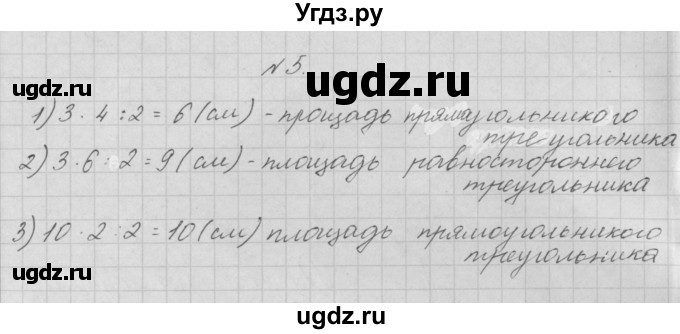 Угдз.ру
№5.
ugdz.ru
1) 3 · 4 : 2 = 6 (см) - прощадь прямаугольникого
треугольника
2) 3 · 6 : 2 = 9 (см) - площадь равностороннего
треугольника
ugdz.ru
ugdz.ru
3) 10 · 2 : 2 = 10 (см) площадь прямоугольникого
треугольника
ugdz.ru
ugdz.ru
Угдз.ру